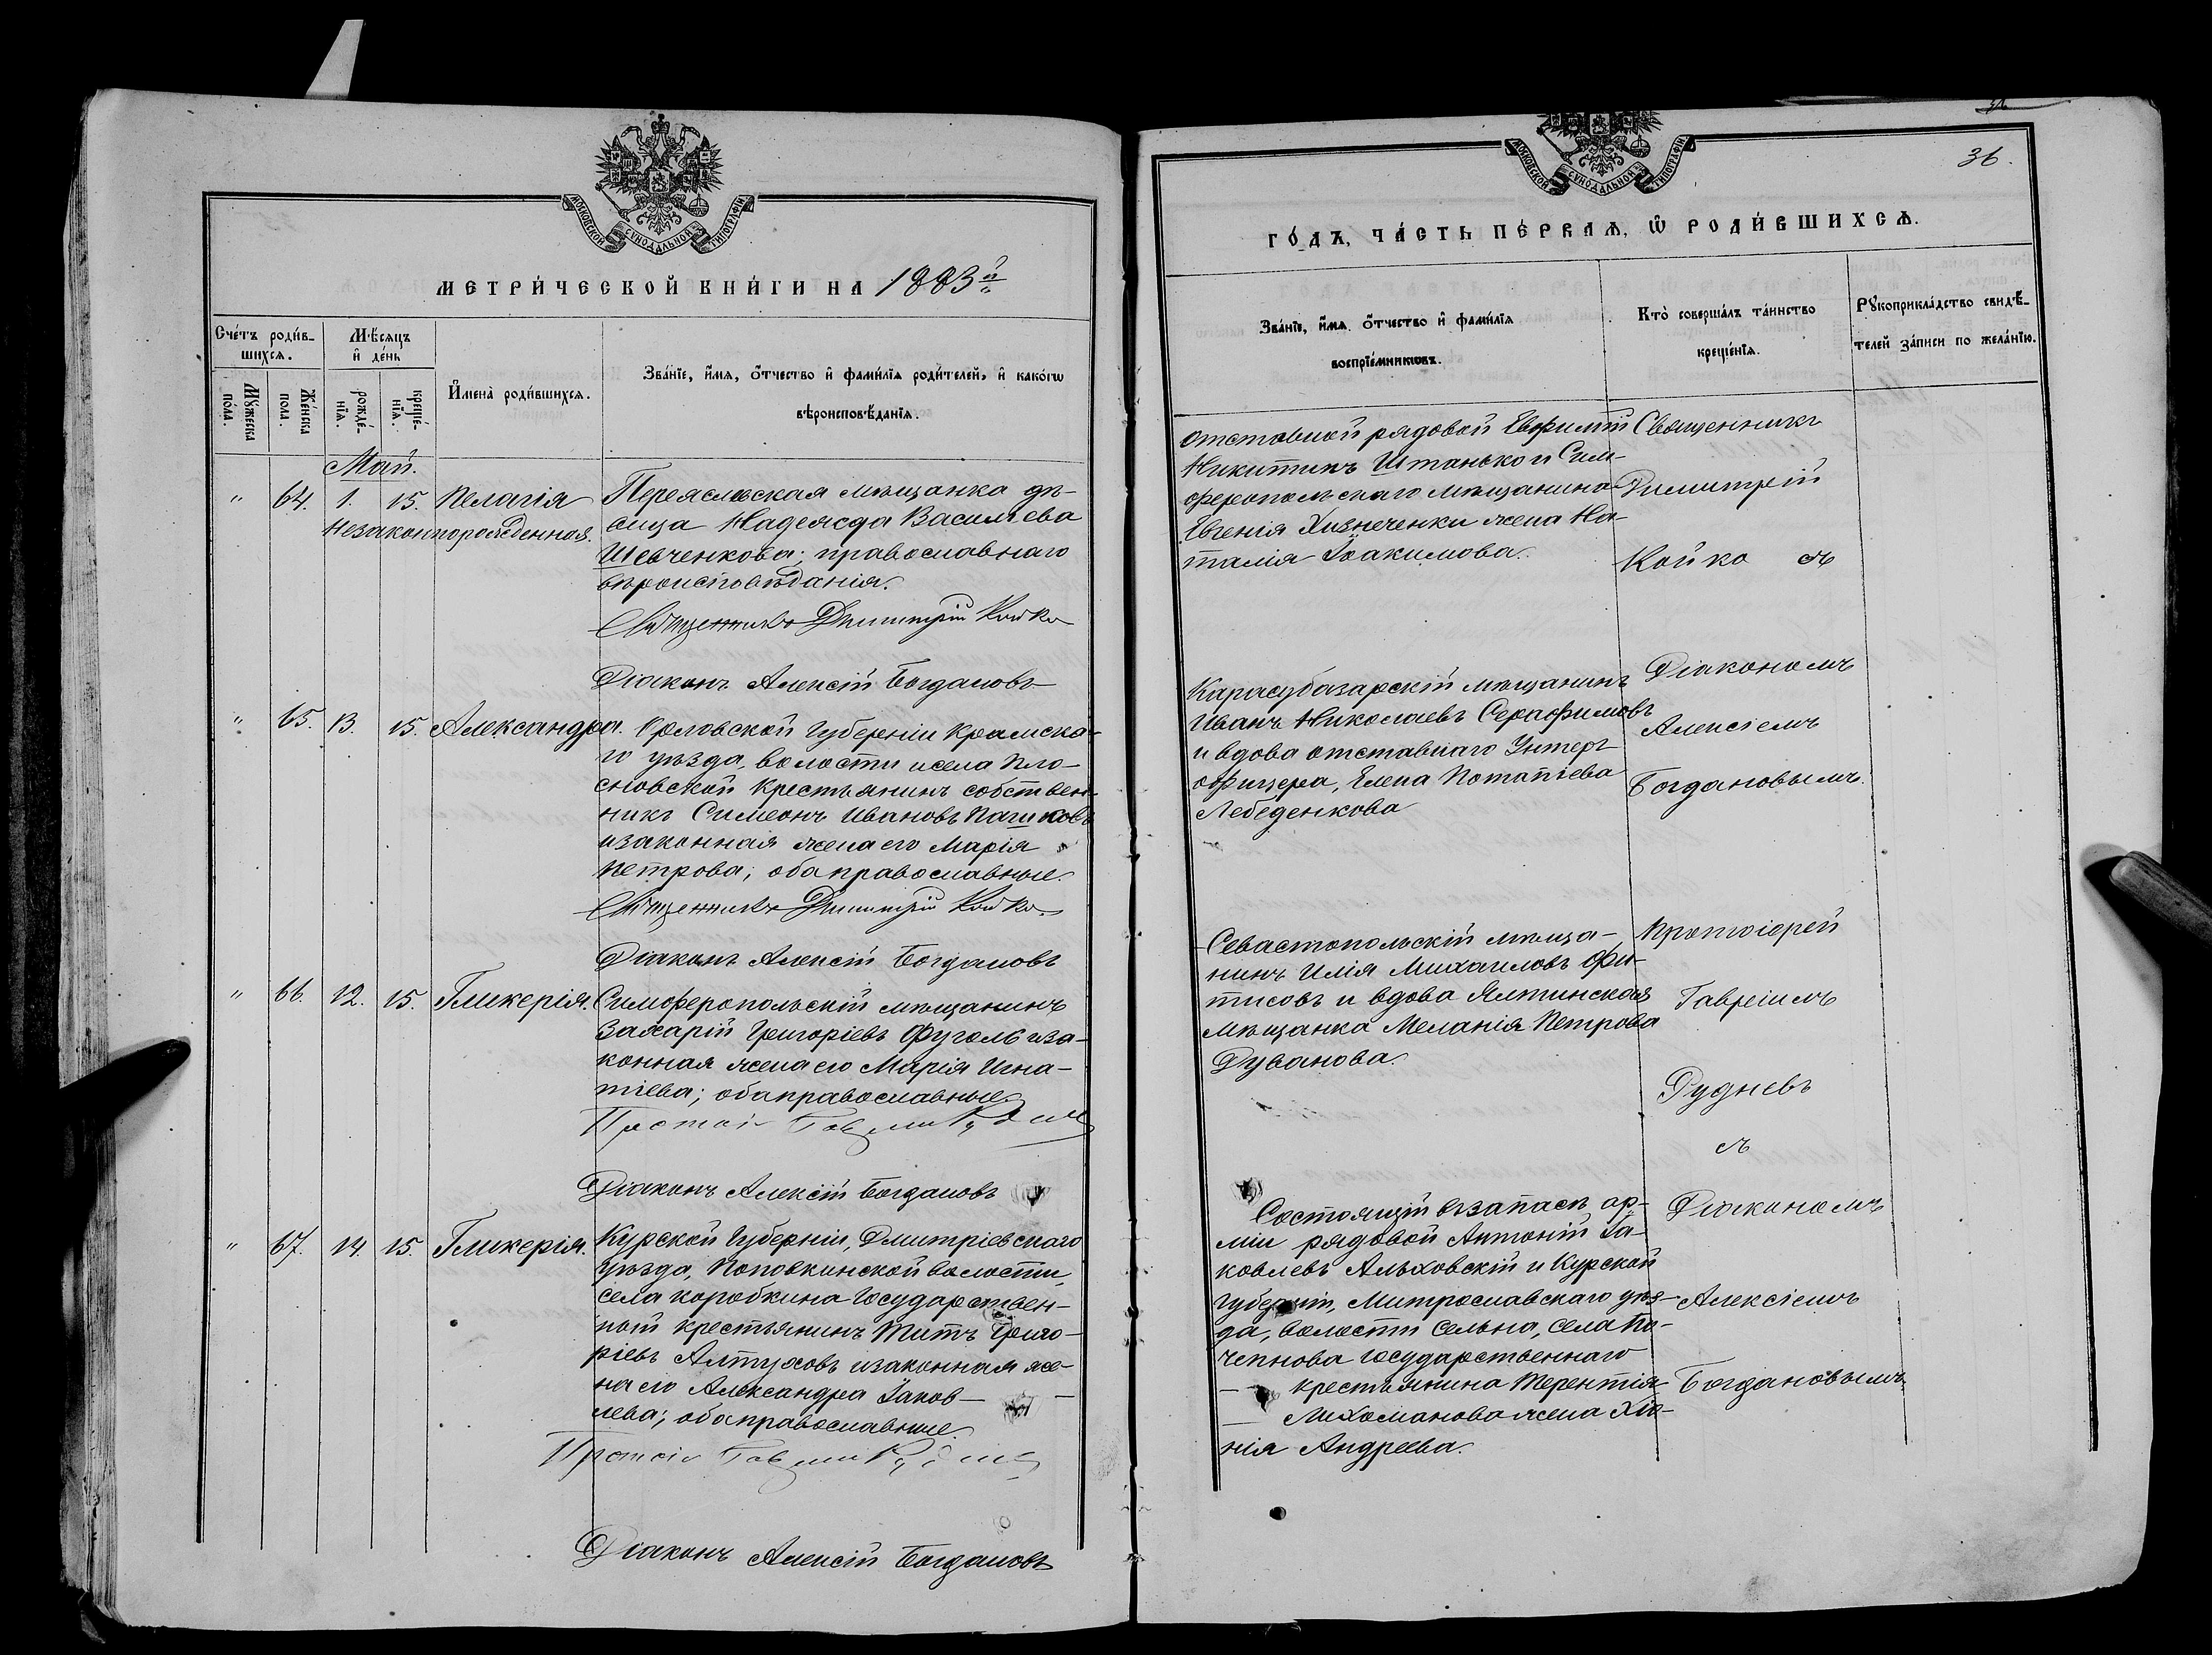 МОСКОВСКОЙ СѴНОДАЛЬНОЙ ТИПОГРАФІИ
МЕТРИ́ЧЕСКОЙ КНИ́ГИ НА 1883й
Сче́тъ роди́в-
шихсѧ.
Мѣ́сѧцъ
и҆ де́нь
Мꙋ́жеска
по́ла.
Же́нска
пола.
рожде́-
нїѧ.
креще́-
нїѧ.
И҆мена̀ роди́вшихсѧ.
Зва́нїе, и҆́мѧ, ѻ҆́тчество и҆ фами́лїѧ роди́телей, и҆ како́гѡ
вѣроисповѣ́данїѧ.
Май.
" 64. 1. 15. Пелагія
Незаконнорожденная.
Переяславская мѣщанка дѣ-
вица Надежда Васильева
Шевченкова; православнаго
вѣроисповѣданія.
Священникъ Димитрій Койко
Діаконъ Алексій Богдановъ
" 65. 13. 15. Александра.
Орловской Губерніи Крамска-
го уѣзда, волости и села Пло-
сковской крестьянинъ собствен-
никъ Симеонъ Ивановъ Пашковъ
и законная жена его Марія
Петрова; оба православные.
Священникъ Димитрій Койко.
Діаконъ Алексій Богдановъ
" 66. 12. 15. Гликерія.
Симферопольскій мѣщанинъ
Захарій Григоріевъ Фуголь и за-
конная жена его Марія Игна-
тіева; оба православные.
Діаконъ Алексій Богдановъ
" 67. 14. 15. Гликерія.
Курской Губерніи, Дмитріевскаго
уѣзда, Поповкинской волости,
села Коробкина Государствен-
ный крестьянинъ Титъ Григо-
ріевъ Алтуховъ и законная же-
на его Александра Іаков-
лева; оба православные.
Діаконъ Алексій Богдановъ
36.
МОСКОВСКОЙ СѴНОДАЛЬНОЙ ТИПОГРАФІИ
ГО́ДЪ, ЧА́СТЬ ПЕ́РВАѦ, Ѡ҆ РОДИ́ВШИХСѦ.
Зва́нїе, и҆́мѧ ѻ҆́тчество и҆ фами́лїѧ
воспрїе́мникѡвъ.
Кто̀ соверша́лъ та́инство
креще́нїѧ.
Рꙋкоприкла́дство свидѣ́-
телей за́писи по жела́нїю.
Отставной рядовой Евфимій
Никитинъ Штанько и Сим-
феропольскаго мѣщанина
Евгенія Хизнеченки жена На-
талія Іоакимова.
Священникъ
Димитрій
Койко съ
Карасубазарскій мѣщанинъ
Иванъ Николаевъ Серафимовъ
и вдова отставнаго Унтеръ
офицера, Елена Потапіева
Лебеденкова
Діакономъ
Алексіемъ
Богдановымъ.
Севастопольскій мѣща-
нинъ Илія Михаиловъ Фи-
тисовъ и вдова Ялтинская
мѣщанка Меланія Петрова
Дуванова.
Протоіерей
Гавріилъ
Рудневъ
съ
Состоящій въ запасѣ ар-
міи рядовой Антоній Іа-
ковлевъ Альховскій и Курской
губерніи, Митрославскаго уѣз-
да, волости Сельно, села По-
чепнова государственнаго
крестьянина Терентія
Лихоманова жена Хіо-
нія Андреева.
Діакономъ
Алексіемъ
Богдановымъ